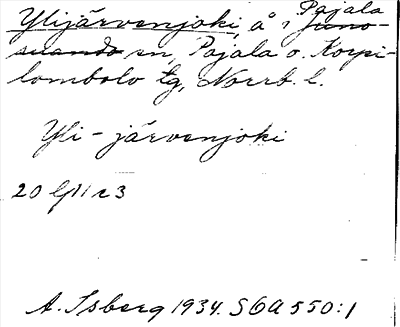 Ylijärvenjoki, å i Pajala Juno-
suando sn, Pajala o. Korpi-
lombolo tg, Norrb. l.
Yli-järvenjoki
A. Isberg 1934. SOA 550:1